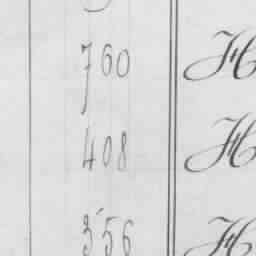 760 H
408 H
356 H